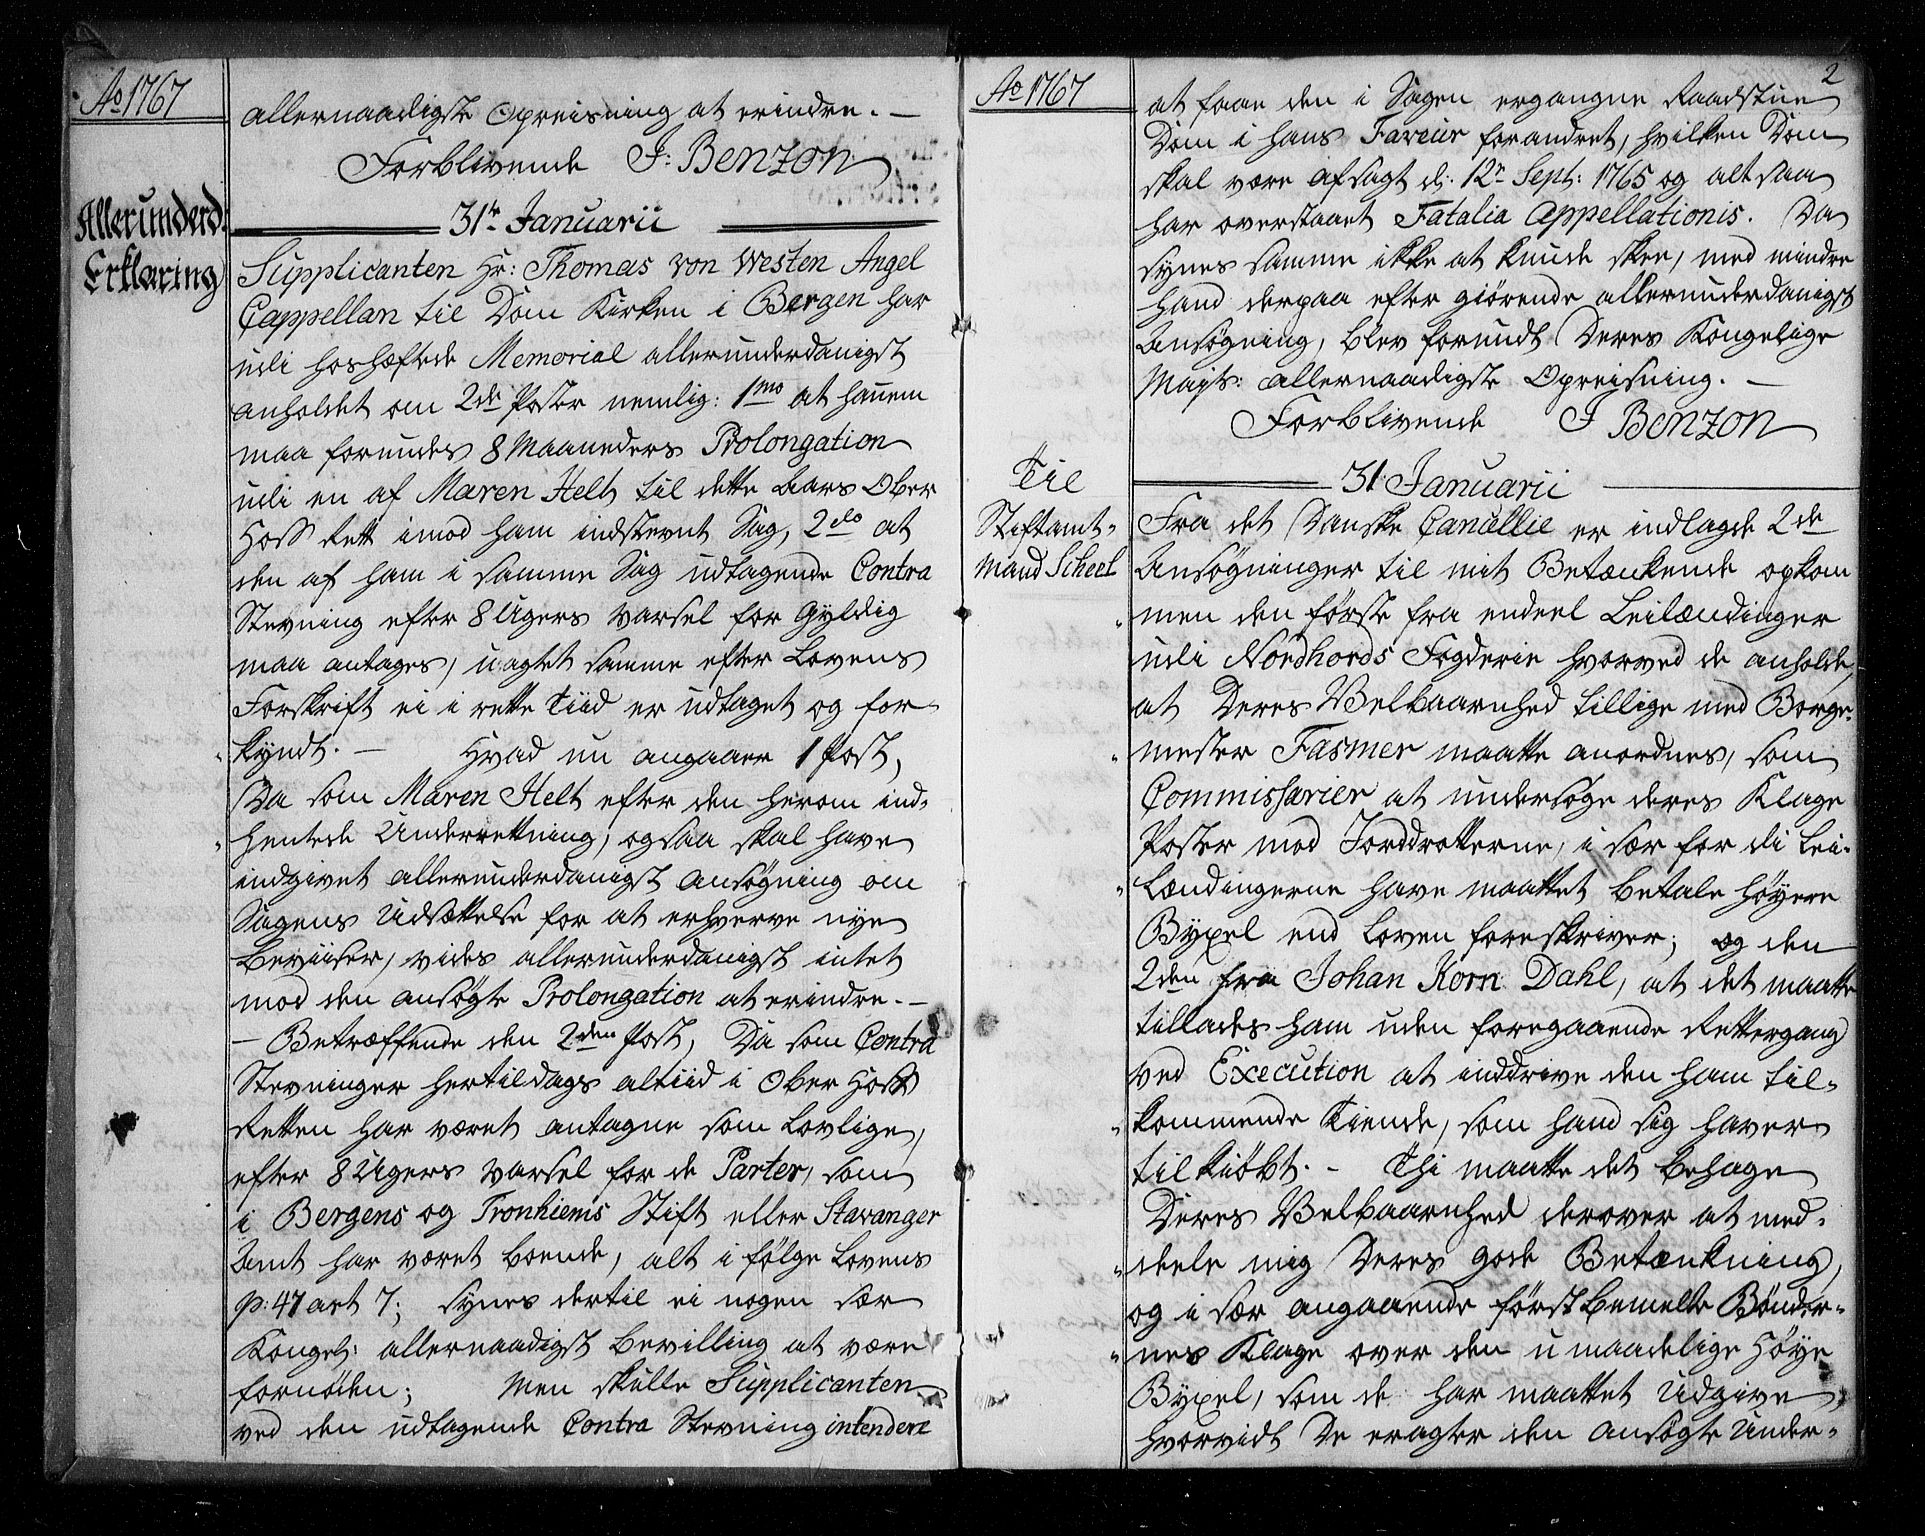 Ao 1767
allernaadigste Opreisning at erindre. —
Forblivende J: Benzon
31te Januarii
Allerunderd:
Erklæring
Supplicanten Hr: Thomas von Westen Angel
Cappellan til Dom Kirken i Bergen har
udi hoshæftede Memorial allerunderdanigst
anholdet om 2de Poster nemlig: 1mo at hannem
maa forundes 8 Maaneders Prolongation
udi en af Maren Helt til dette Aars Ober
Hoff Rett imod ham indstevnt Sag, 2do at
den af ham i samme Sag udtagende Contra
Stevning efter 8 Ugers Varsel for gyldig
maa antages, uagtet samme efter Lovens
Forskrift ei i rette Tiid er udtaget og for-
kyndt. — Hvad nu angaaer 1 Post,
Da som Maren Helt efter den herom ind-
hentede Underrettning, ogsaa skal have
indgivet allerunderdanigst Ansøgning om
Sagens Udsættelse for at erhverve nye
Beviiser, vides allerunderdanigst intet
mod den ansøgte Prolongation at erindre. —
— Betræffende den 2den Post, Da som Contra
Stevninger hertildags altiid i Ober Hoff
Retten har været antagne som Lovlige,
efter 8 Ugers Varsel for de Parter, som
i Bergens og Tronhiems Stift eller Stavanger
Amt har været boende, alt i følge Lovens
p: 47 art 7; synes dertil ei nogen sær
Kongel: allernaadigst Bevilling at være
fornøden; Men skulle Supplicanten
ved den udtagende Contra Stevning intendere
Ao 1767
2
at faae den i Sagen ergangne Raadstue
Dom i hans Faveur forandret, hvilken Dom
skal være afsagt d: 12te Sept: 1765 og altsaa
har overstaaet Fatalia Appellationis. Da
synes samme ikke at kunde skee, med mindre
hand derpaa efter giørende allerunderdanigst
Ansøgning, blev forundt Deres Kongelige
Majts: allernaadigste Opreisning. —
Forblivende J Benzon
31 Januarii
Til
Stiftamt-
mand Scheel
Fra det Danske Cancellie er indlagde 2de
Ansøgninger til mit Betænkende opkom
men den første fra endeel Leilændinger
udi Nordhords Fogderie hvorved de anholde,
at Deres Velbaarnhed tillige med Borge-
mester Fasmer maatte anordnes, som
Commissarier at undersøge deres Klage
Poster mod Jorddrotterne, i sær for di Lei-
lændingerne have maattet betale høyere
Byxel end Loven foreskriver; og den
2den fra Johan Korn Dahl, at det maatte
tillades ham uden foregaaende Rettergang
ved Execution at inddrive den ham til-
kommende Tiende, som hand sig haver
tilkiøbt. — Thi maatte det behage
Deres Velbaarnhed derover at med-
dele mig Deres gode Betænkning,
og i sær angaaende først bemelte Bønder-
nes Klage over den umaadelige høye
Byxel, som de har maattet udgive
hvorvidt De eragter den ansøgte Under-